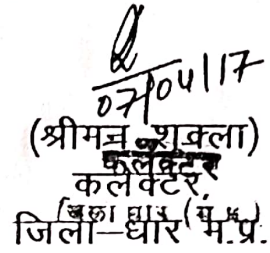 07/04/17
(श्रीमन शुक्ला)
कलेक्टर
कलेक्टर,
जिला–धार म.प्र.